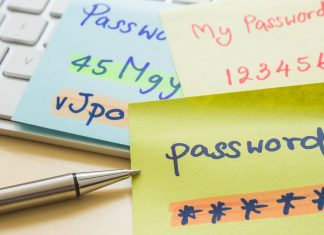 Password
45 Mgy
vJpo
My Password
123456
password
*****